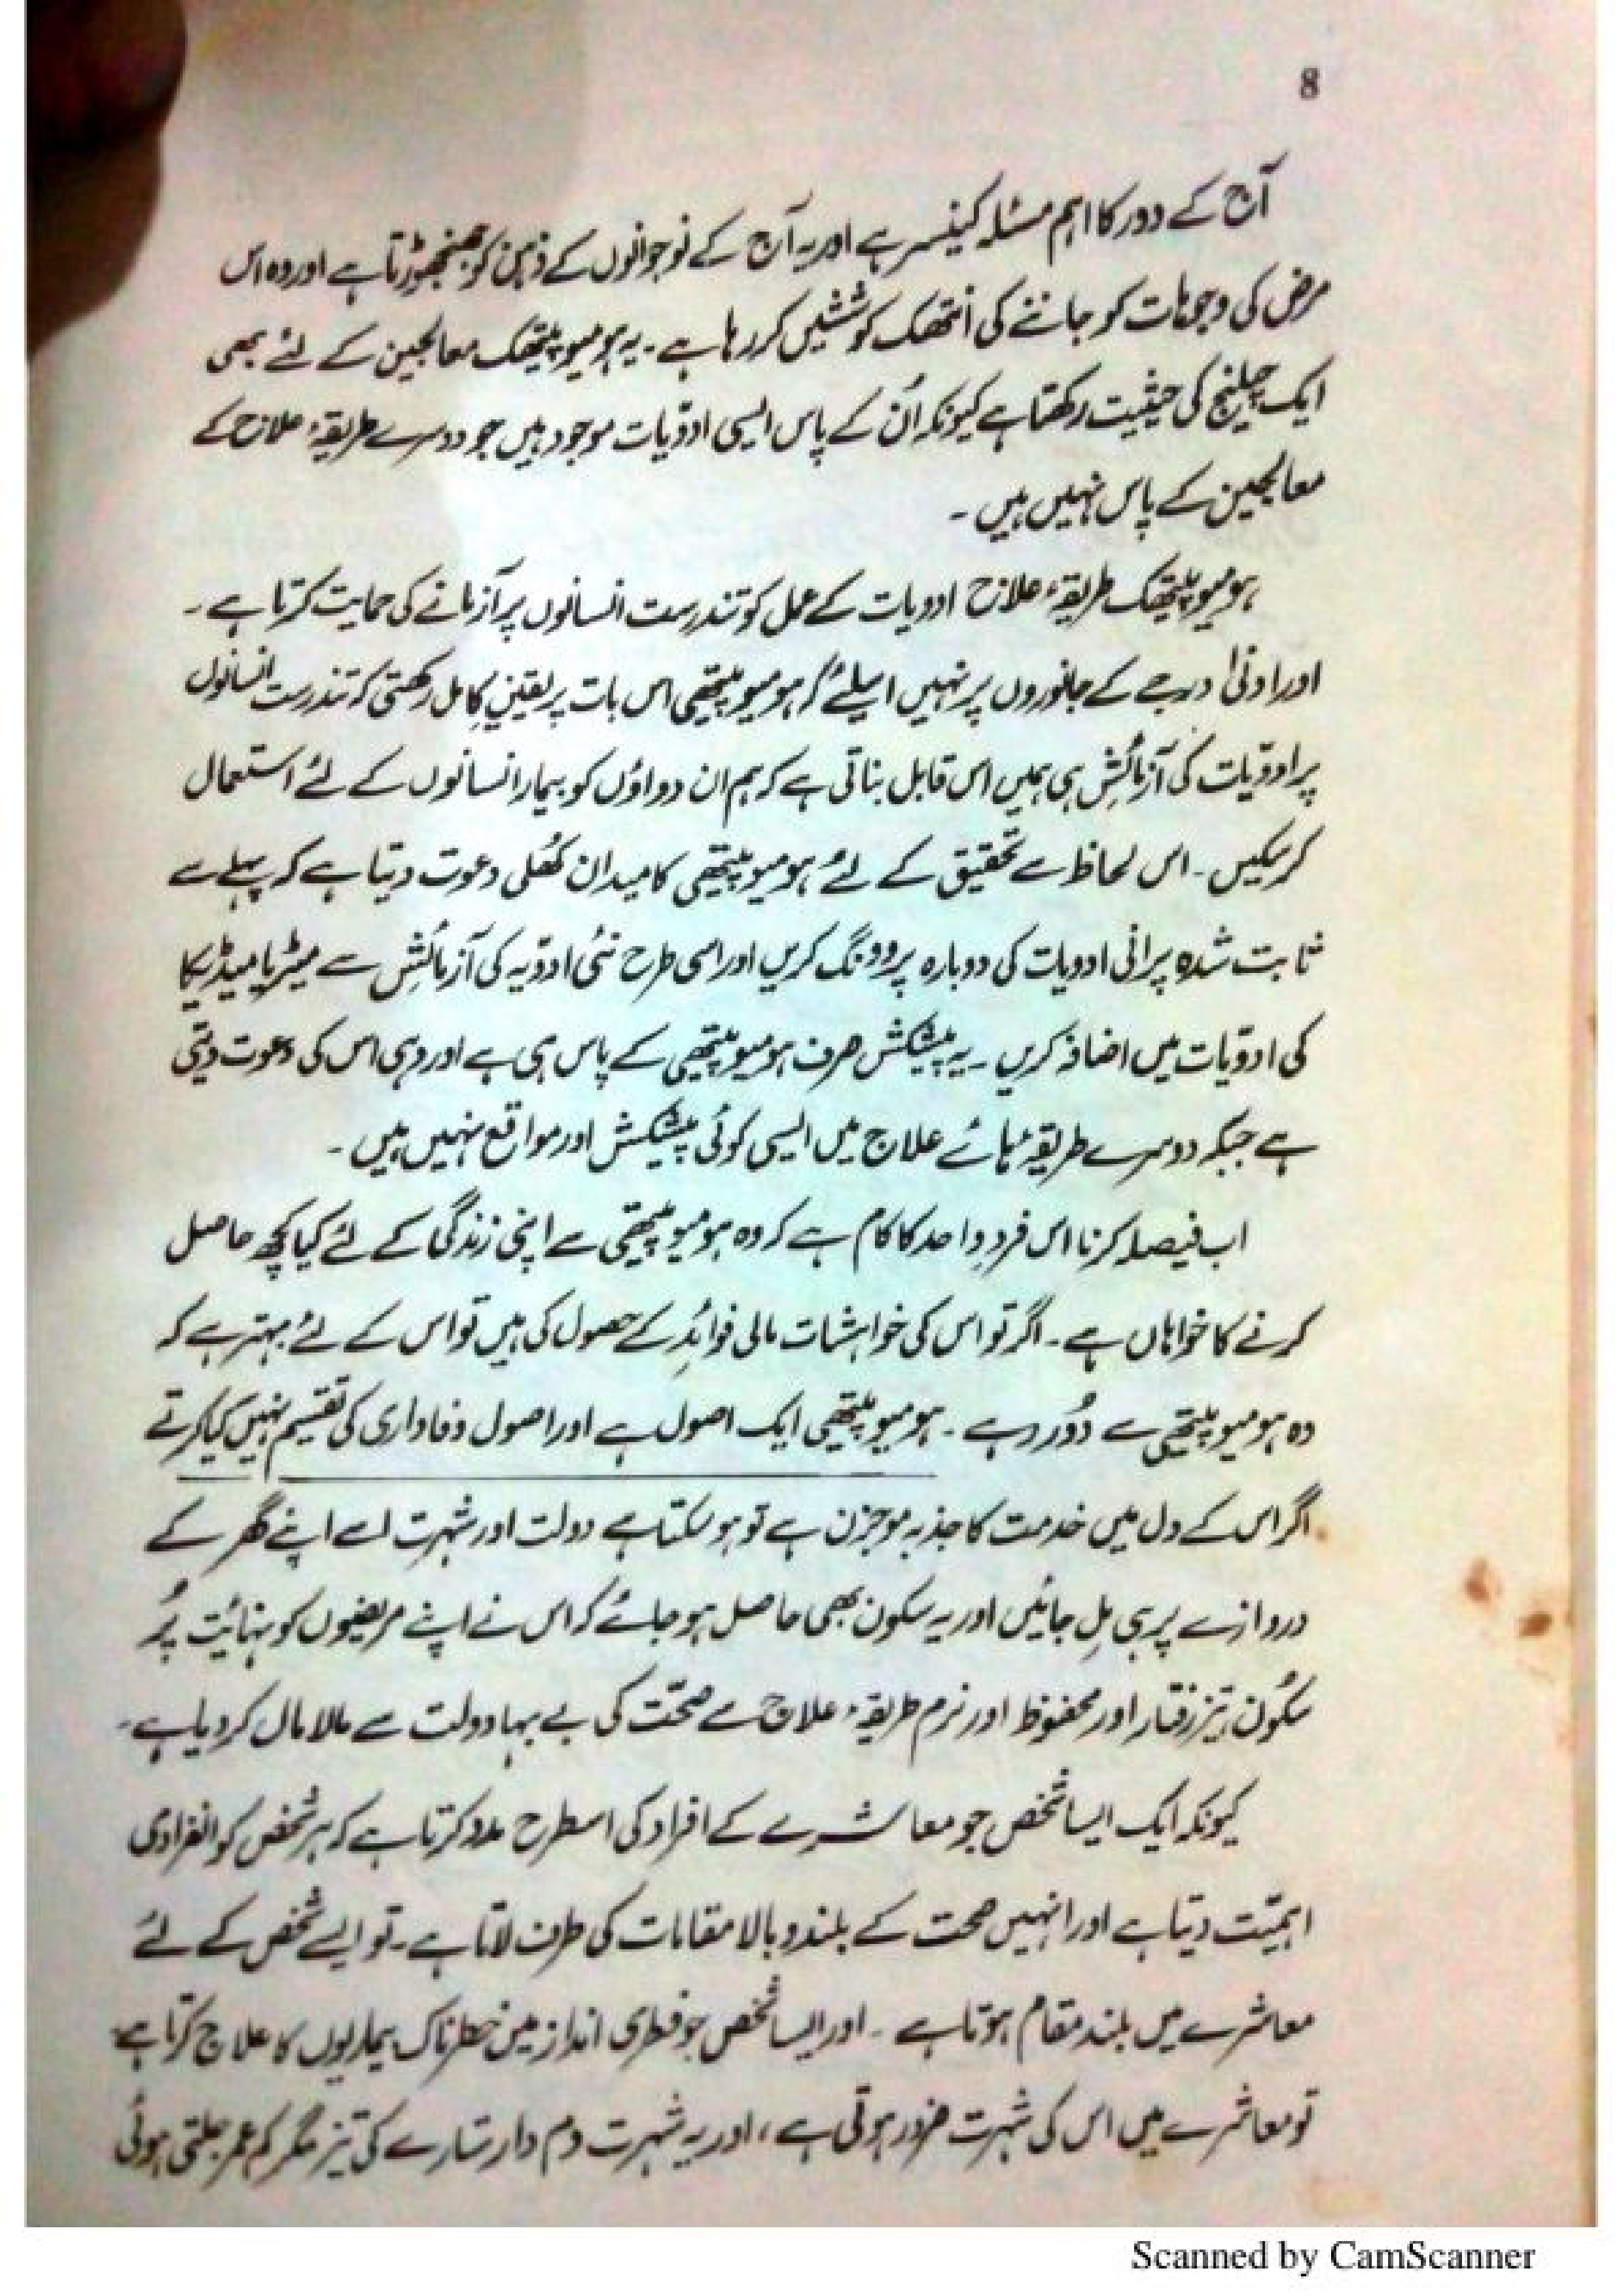 8
آج کے دور کا اہم مسئلہ کینسر ہے اور یہ آج کے نوجوانوں کے ذہن کو جھنجھوڑتا ہے اور وہ اس
مرض کی وجوہات کو جاننے کی انتھک کوششیں کر رہا ہے۔ یہ ہومیوپیتھک معالجین کے لئے بھی
ایک چیلنج کی حیثیت رکھتا ہے کیونکہ اُن کے پاس ایسی ادوّیات موجود ہیں جو دوسرے طریقۂ علاج کے
معالجین کے پاس نہیں ہیں۔
ہومیوپیتھک طریقۂ علاج ادویات کے عمل کو تندرست انسانوں پر آزمانے کی حمایت کرتا ہے۔
اور ادنیٰ درجے کے جانوروں پر نہیں اسلئے کہ ہومیوپیتھی اس بات پر یقینِ کامل رکھتی کہ تندرست انسانوں
پر ادوّیات کی آزمائش ہی ہمیں اس قابل بناتی ہے کہ ہم ان دواؤں کو بیمار انسانوں کے لئے استعمال
کر سکیں۔ اس لحاظ سے تحقیق کے لئے ہومیوپیتھی کا میدان کُھلی دعوت دیتا ہے کہ پہلے سے
ثابت شدہ پرانی ادویات کی دوبارہ پروونگ کریں اور اسی طرح نئی ادوّیہ کی آزمائش سے میٹریا میڈیکا
کی ادوّیات میں اضافہ کریں۔ یہ پیشکش صرف ہومیوپیتھی کے پاس ہی ہے اور وہی اس کی دعوت دیتی
ہے جبکہ دوسرے طریقہ ہائے علاج میں ایسی کوئی پیشکش اور مواقع نہیں ہیں۔
اب فیصلہ کرنا اس فردِ واحد کا کام ہے کہ وہ ہومیوپیتھی سے اپنی زندگی کے لئے کیا کچھ حاصل
کرنے کا خواہاں ہے۔ اگر تو اس کی خواہشات مالی فوائد کے حصول کی ہیں تو اس کے لئے بہتر ہے کہ
وہ ہومیوپیتھی سے دُور رہے۔ ہومیوپیتھی ایک اصول ہے اور اصول وفاداری کی تقسیم نہیں کیا کرتے
اگر اس کے دل میں خدمت کا جذبہ موجزن ہے تو ہو سکتا ہے دولت اور شہرت اسے اپنے گھر کے
دروازے پر ہی مِل جائیں اور یہ سکون بھی حاصل ہو جائے کہ اس نے اپنے مریضوں کو نہائیت پُر
سکُون، تیز رفتار اور محفوظ اور نرم طریقۂ علاج سے صحّت کی بے بہا دولت سے مالا مال کر دیا ہے۔
کیونکہ ایک ایسا شخص جو معاشرے کے افراد کی اسطرح مدد کرتا ہے کہ ہر شخص کو انفرادی
اہمیّت دیتا ہے اور انہیں صحت کے بلند و بالا مقامات کی طرف لاتا ہے۔ تو ایسے شخص کے لئے
معاشرے میں بلند مقام ہوتا ہے۔ اور ایسا شخص جو فطری انداز میں خطرناک بیماریوں کا علاج کرتا ہے
تو معاشرے میں اس کی شہرت ضرور ہوتی ہے، اور یہ شہرت دم دار ستارے کی تیز مگر کم عمر جلتی ہوئی
Scanned by CamScanner